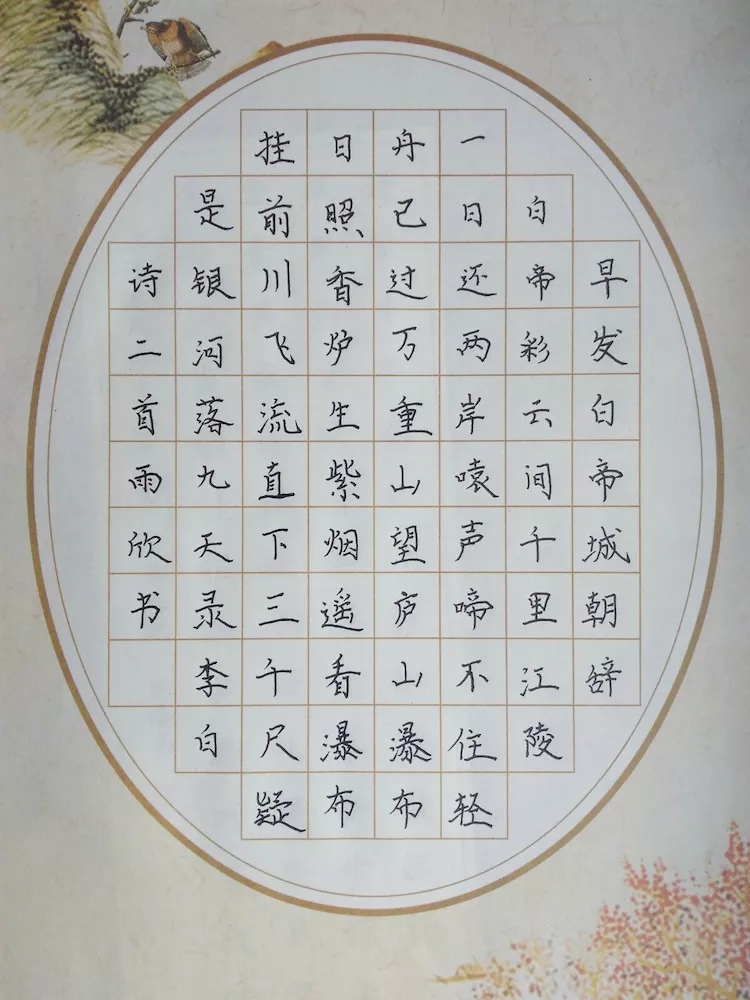 早发白帝城朝辞
白帝彩云间千里江陵
一日还两岸猿声啼不住轻
舟已过万重山望庐山瀑布
日照香炉生紫烟遥看瀑布
挂前川飞流直下三千尺疑
是银河落九天录李白
诗二首雨欣书